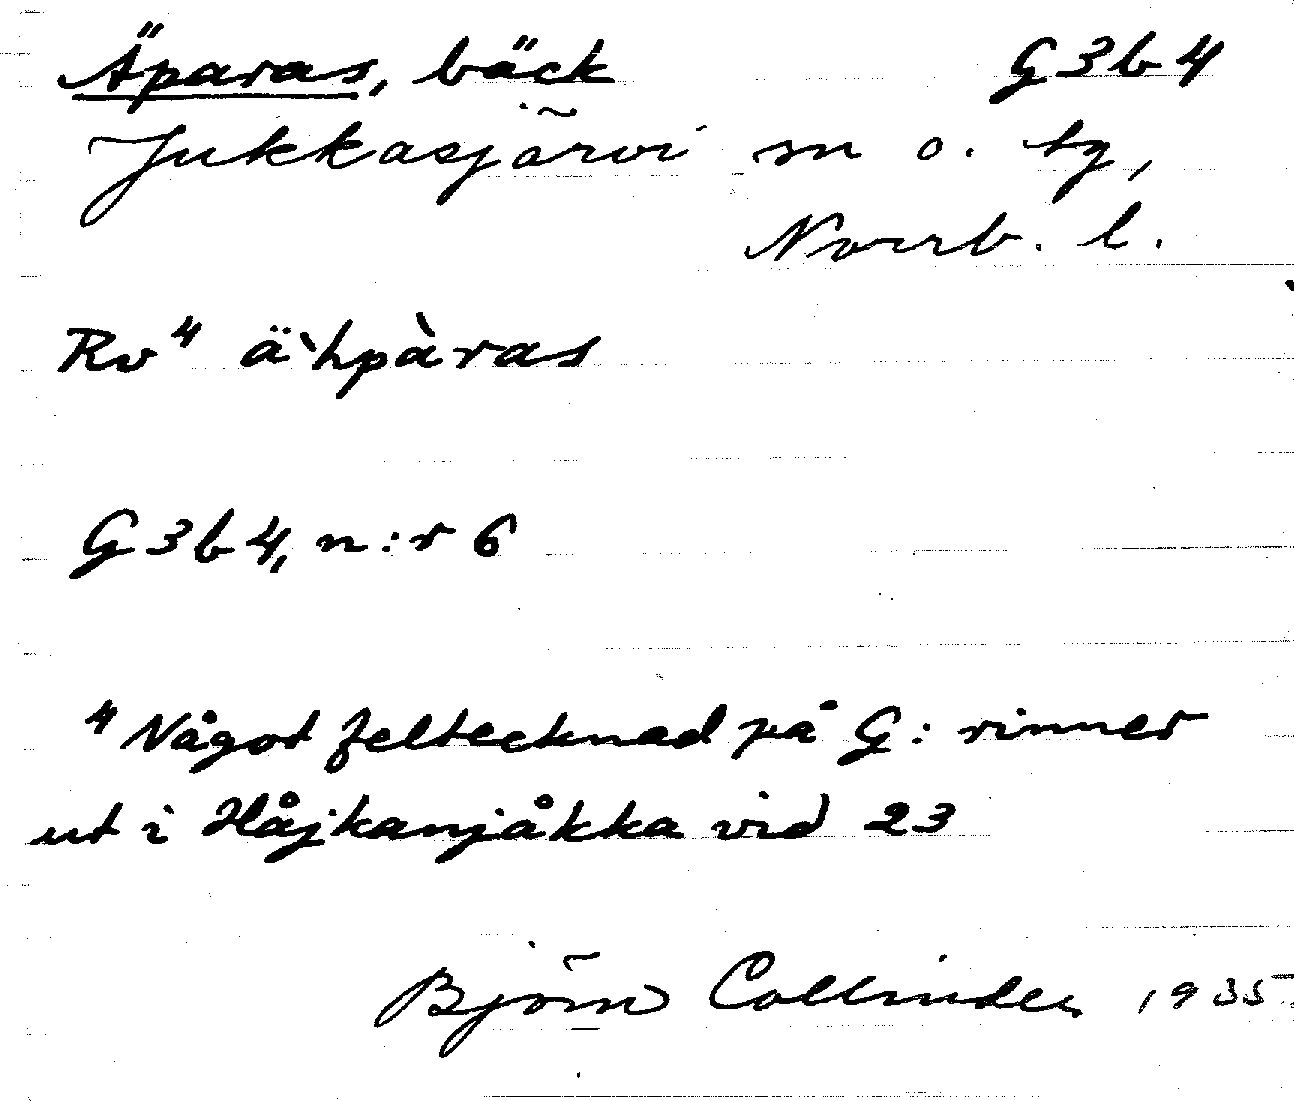 Äparas, bäck G3b4
Jukkasjärvi sn o. tg,
Norrb. l.
Rv⁴ ä`hpàras
G3b4, n:r 6
⁴ Något feltecknad på G: rinner
ut i Håjkanjåkka vid 23
Björn Collinder 1935